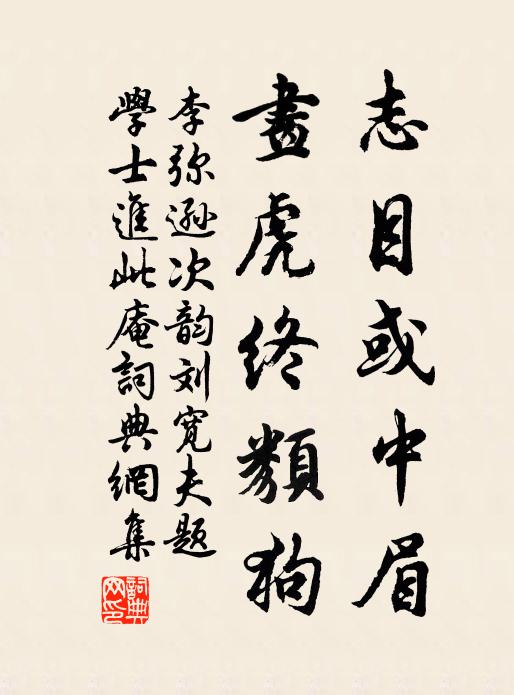 志目或中眉
畫虎終類狗
李弥遜次韵刘寬夫題
學士進此庵詞典網集
詞典網印